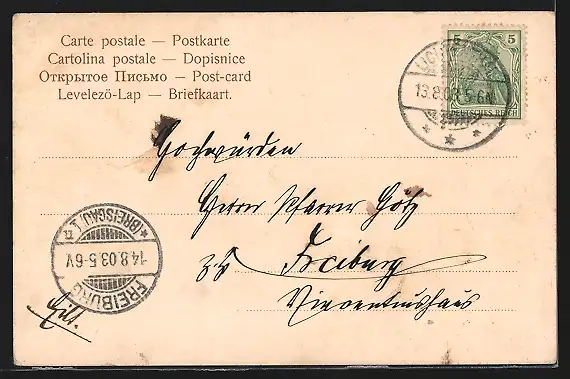 Carte postale — Postkarte
Cartolina postale — Dopisnice
Открытое Письмо — Post-card
Levelezö-Lap — Briefkaart.
5 5
DEUTSCHES REICH
13.8.03.5-6N.
Hochwürden
Herrn Pfarrer Götz
Freiburg
Vincentiushaus
FREIBURG
14.8.03.5-6V.
(BREISGAU) 1
Eilt.